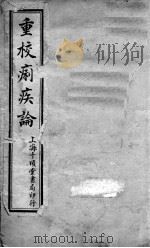 重校痢疾論
上海千頃堂書局印行